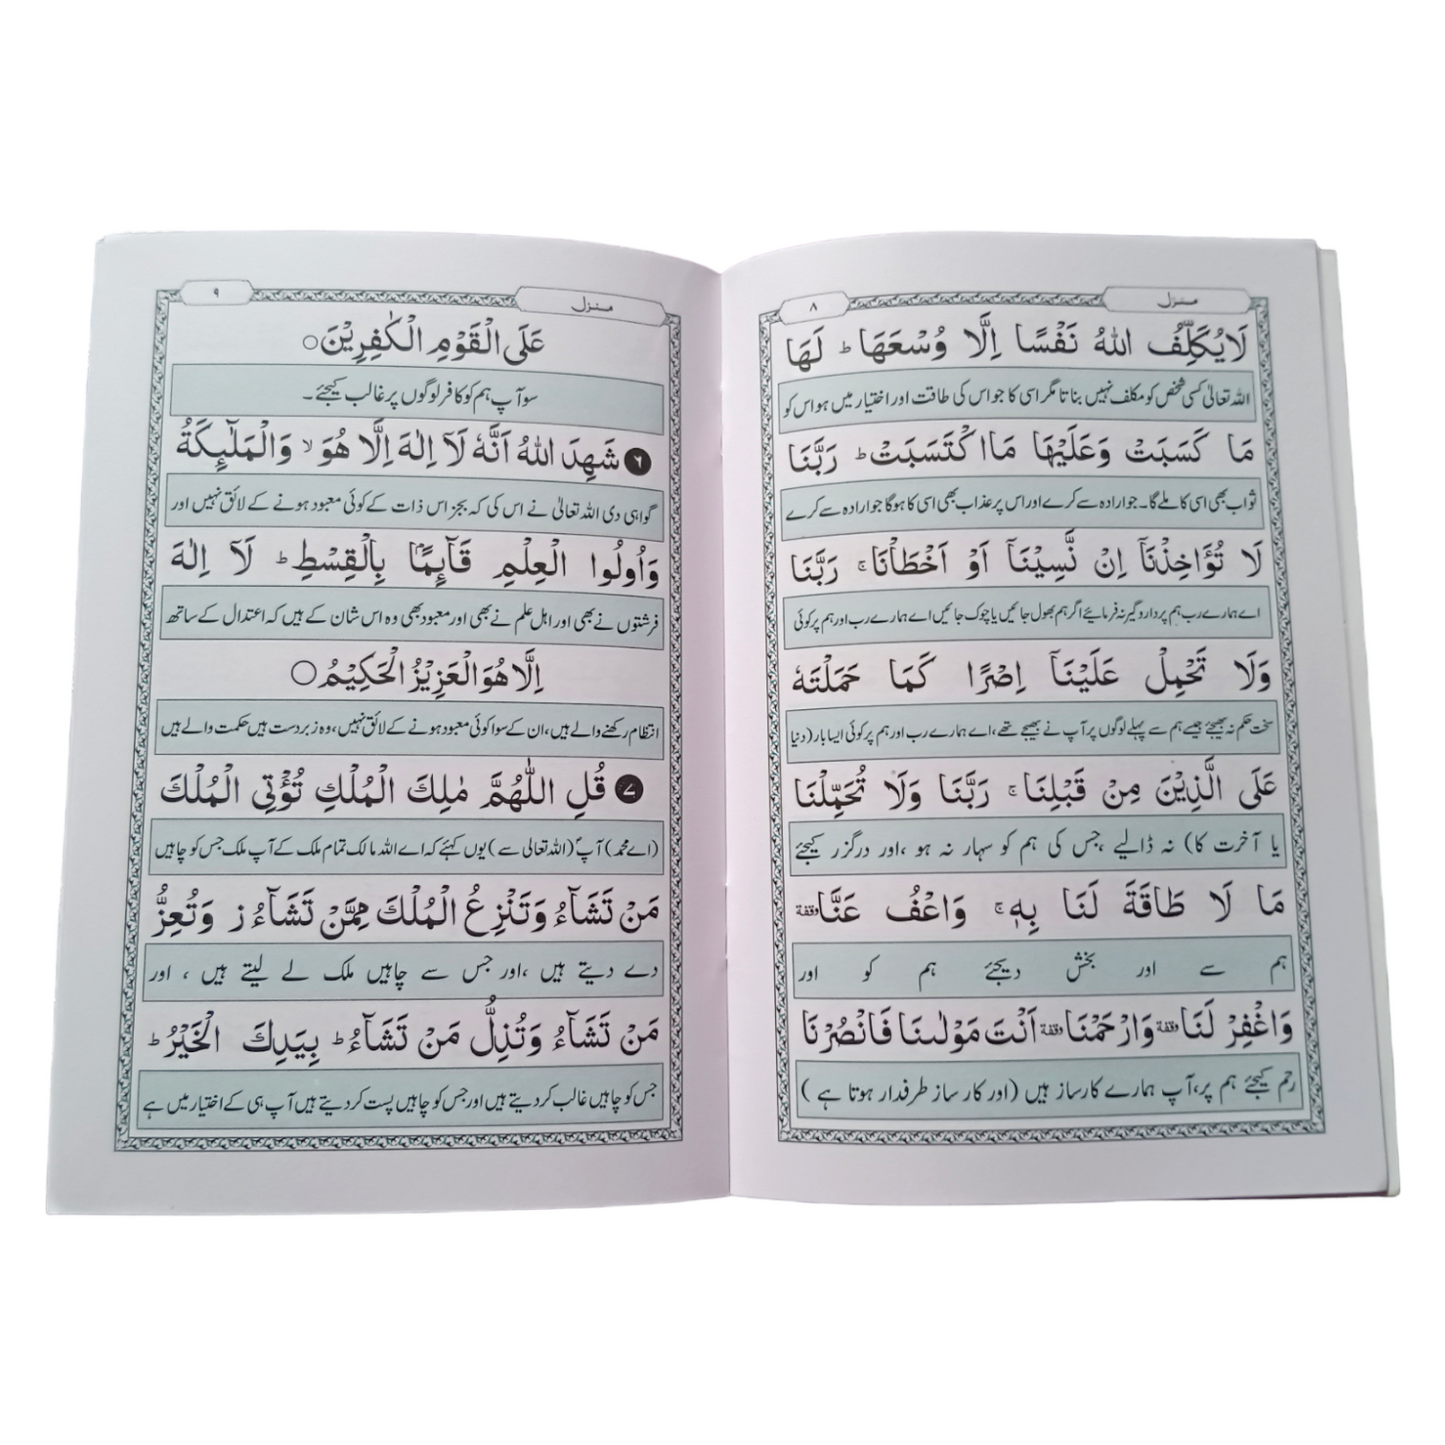 منزل ۸
لَا یُکَلِّفُ اللّٰہُ نَفْسًا اِلَّا وُسْعَہَا ؕ لَہَا
اللہ تعالیٰ کسی شخص کو مکلف نہیں بناتا مگر اسی کا جو اس کی طاقت اور اختیار میں ہو اس کو
مَا کَسَبَتْ وَعَلَیْہَا مَا اکْتَسَبَتْ ؕ رَبَّنَا
ثواب بھی اسی کا ملے گا۔ جو ارادہ سے کرے اور اس پر عذاب بھی اسی کا ہوگا جو ارادہ سے کرے
لَا تُؤَاخِذْنَآ اِنْ نَّسِیْنَآ اَوْ اَخْطَاْنَا ۚ رَبَّنَا
اے ہمارے رب ہم پر داروگیر نہ فرمائیے اگر ہم بھول جائیں یا چوک جائیں اے ہمارے رب اور ہم پر کوئی
وَلَا تَحْمِلْ عَلَیْنَآ اِصْرًا کَمَا حَمَلْتَہٗ
سخت حکم نہ بھیجئے جیسے ہم سے پہلے لوگوں پر آپ نے بھیجے تھے، اے ہمارے رب اور ہم پر کوئی ایسا بار (دنیا
عَلَی الَّذِیْنَ مِنْ قَبْلِنَا ۚ رَبَّنَا وَلَا تُحَمِّلْنَا
یا آخرت کا) نہ ڈالیے ،جس کی ہم کو سہار نہ ہو ،اور درگزر کیجئے
مَا لَا طَاقَۃَ لَنَا بِہٖ ۚ وَاعْفُ عَنَّا وقفۃ
ہم سے اور بخش دیجئے ہم کو اور
وَاغْفِرْ لَنَا وقفۃ وَارْحَمْنَا وقفۃ اَنْتَ مَوْلٰىنَا فَانْصُرْنَا
رحم کیجئے ہم پر،آپ ہمارے کارساز ہیں (اور کارساز طرفدار ہوتا ہے )
منزل ۹
عَلَی الْقَوْمِ الْکٰفِرِیْنَ ○
سو آپ ہم کو کافر لوگوں پر غالب کیجئے ۔
۶ شَہِدَ اللّٰہُ اَنَّہٗ لَآ اِلٰہَ اِلَّا ہُوَ ۙ وَالْمَلٰٓئِکَۃُ
گواہی دی اللہ تعالیٰ نے اس کی کہ بجز اس ذات کے کوئی معبود ہونے کے لائق نہیں اور
وَاُولُوا الْعِلْمِ قَآئِمًۢا بِالْقِسْطِ ؕ لَآ اِلٰہَ
فرشتوں نے بھی اور اہل علم نے بھی اور معبود بھی وہ اس شان کے ہیں کہ اعتدال کے ساتھ
اِلَّا ہُوَ الْعَزِیْزُ الْحَکِیْمُ ○
انتظام رکھنے والے ہیں،ان کے سوا کوئی معبود ہونے کے لائق نہیں،وہ زبردست ہیں حکمت والے ہیں
۷ قُلِ اللّٰہُمَّ مٰلِکَ الْمُلْکِ تُؤْتِی الْمُلْکَ
(اے محمدؐ) آپ (اللہ تعالی سے) یوں کہئے کہ اے اللہ مالک تمام ملک کے آپ ملک جس کو چاہیں
مَنْ تَشَآءُ وَتَنْزِعُ الْمُلْکَ مِمَّنْ تَشَآءُ ز وَتُعِزُّ
دے دیتے ہیں ،اور جس سے چاہیں ملک لے لیتے ہیں ، اور
مَنْ تَشَآءُ وَتُذِلُّ مَنْ تَشَآءُ ؕ بِیَدِکَ الْخَیْرُ ؕ
جس کو چاہیں غالب کر دیتے ہیں اور جس کو چاہیں پست کر دیتے ہیں آپ ہی کے اختیار میں ہے